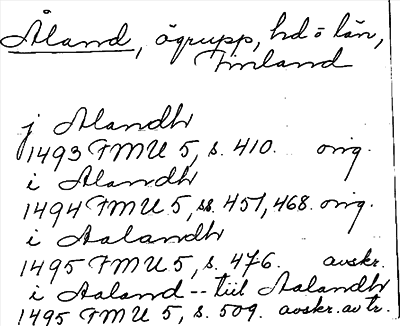 Åland, ögrupp, hd o län,
Finland
j Alandh
1493 FMU 5, s. 410. orig.
i Alandh
1494 FMU 5, ss. 451, 468. orig.
i Aalandh
1495 FMU 5, s. 476. avskr.
i Aaland -- tiil Aalandh
1495 FMU 5, s. 509. avskr. av tr.